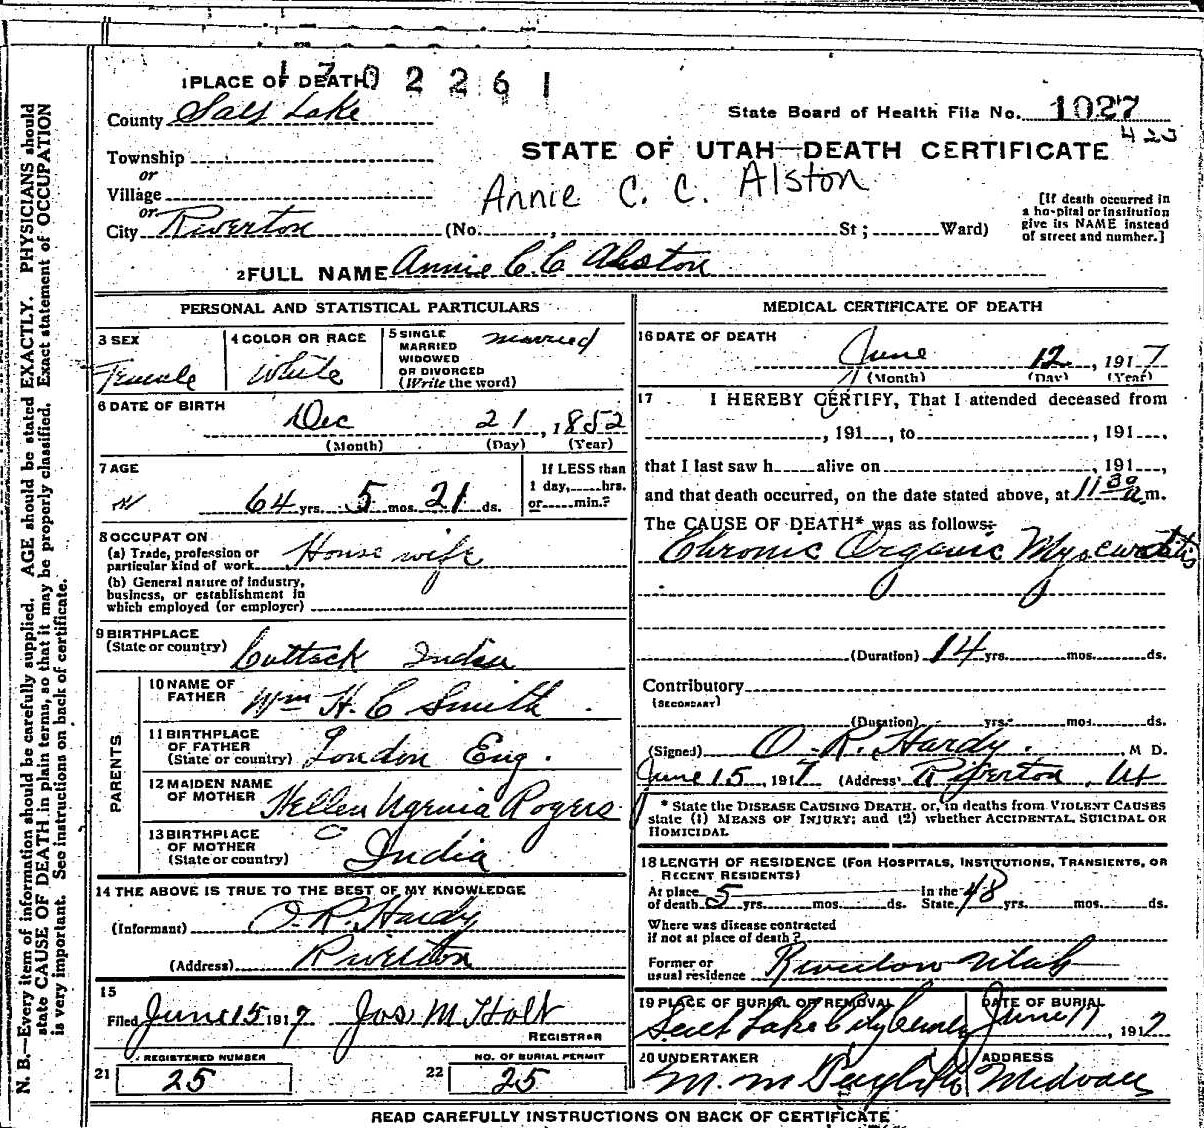 1 PLACE OF DEATH
1702261
County Salt Lake
State Board of Health File No. 1027
423
Township
or
Village
or
City Riverton
STATE OF UTAH—DEATH CERTIFICATE
Annie C. C. Alston
(No. , St ; Ward)
[If death occurred in
a hospital or institution
give its NAME instead
of street and number.]
2 FULL NAME Annie C. C. Alston
PERSONAL AND STATISTICAL PARTICULARS
3 SEX
Female
4 COLOR OR RACE
White
5 SINGLE
MARRIED
WIDOWED
OR DIVORCED
(Write the word)
married
6 DATE OF BIRTH
Dec 21, 1852
(Month) (Day) (Year)
7 AGE
64 yrs. 5 mos. 21 ds.
If LESS than
1 day, hrs.
or min.?
8 OCCUPATION
(a) Trade, profession or
particular kind of work House wife
(b) General nature of industry,
business, or establishment in
which employed (or employer)
9 BIRTHPLACE
(State or country) Cuttack India
PARENTS
10 NAME OF
FATHER Wm H. C Smith
11 BIRTHPLACE
OF FATHER
(State or country) London Eng.
12 MAIDEN NAME
OF MOTHER Rogers
13 BIRTHPLACE
OF MOTHER
(State or country) India
14 THE ABOVE IS TRUE TO THE BEST OF MY KNOWLEDGE
(Informant) O. R. Hardy
(Address) Riverton
15
Filed June 15 1917 Jos M Holt
REGISTRAR
REGISTERED NUMBER
21 25
NO. OF BURIAL PERMIT
22 25
MEDICAL CERTIFICATE OF DEATH
16 DATE OF DEATH
June 12, 1917
(Month) (Day) (Year)
17 I HEREBY CERTIFY, That I attended deceased from
, 191 , to , 191 ,
that I last saw h alive on , 191 ,
and that death occurred, on the date stated above, at 11 30 a.m.
The CAUSE OF DEATH* was as follows:
Chronic Organic Myocarditis
(Duration) 14 yrs. mos. ds.
Contributory
(SECONDARY)
(Duration) yrs. mos. ds.
(Signed) O. R. Hardy, M D.
June 15, 1917 (Address) Riverton, Ut
* State the DISEASE CAUSING DEATH, or, in deaths from VIOLENT CAUSES
state (1) MEANS OF INJURY; and (2) whether ACCIDENTAL, SUICIDAL OR
HOMICIDAL
18 LENGTH OF RESIDENCE (FOR HOSPITALS, INSTITUTIONS, TRANSIENTS, OR
RECENT RESIDENTS)
At place
of death 5 yrs. mos. ds.
In the
State 48 yrs. mos. ds.
Where was disease contracted
if not at place of death?
Former or
usual residence Riverton Utah
19 PLACE OF BURIAL OR REMOVAL
Salt Lake City Cemetery
DATE OF BURIAL
June 17, 1917
20 UNDERTAKER
M. M
ADDRESS
Midvale
READ CAREFULLY INSTRUCTIONS ON BACK OF CERTIFICATE
N. B.—Every item of information should be carefully supplied. AGE should be stated EXACTLY. PHYSICIANS should
state CAUSE OF DEATH in plain terms, so that it may be properly classified. Exact statement of OCCUPATION
is very important. See instructions on back of certificate.